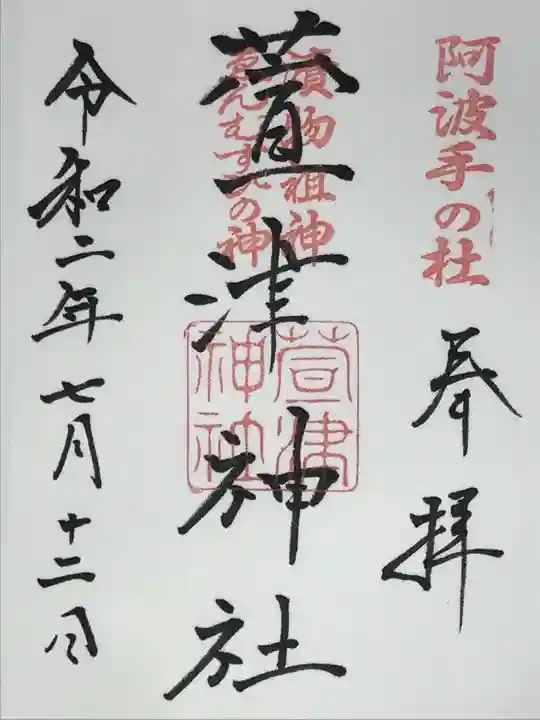 阿波手の杜
奉拝
漬物祖神
ゑんむすびの神
萱津神社
萱津
神社
令和二年七月十二日